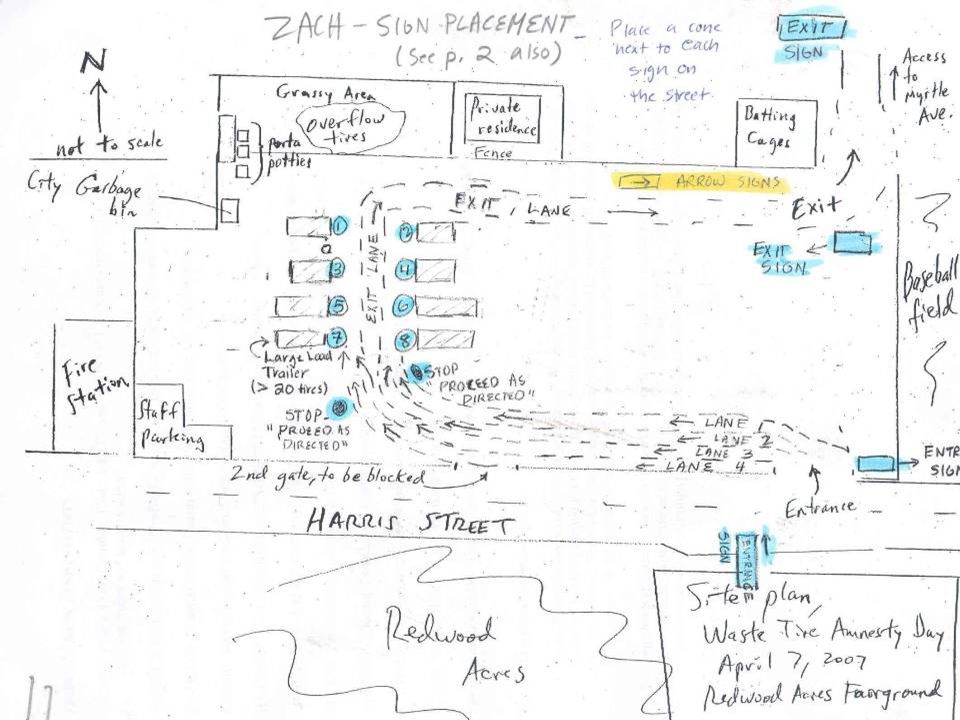 ZACH - SIGN PLACEMENT
(See p. 2 also)
Place a cone
next to each
sign on
the street.
EXIT
SIGN
Access
to
Myrtle
Ave.
N
not to scale
Grassy Area
overflow
tires
porta
potties
Private
residence
Fence
Batting
Cages
City Garbage
bin
→ ARROW SIGNS
EXIT LANE
Exit
EXIT
SIGN
EXIT LANE
1
2
3
4
5
6
7
8
Baseball
field
Fire
Station
Staff
Parking
Large Load
Trailer
(> 20 tires)
STOP
"PROCEED AS
DIRECTED"
STOP
"PROEED AS
DIRECTED"
LANE 1
LANE 2
LANE 3
LANE 4
ENTR
SIGN
2nd gate, to be blocked
Entrance
HARRIS STREET
SIGN
ENTRANCE
Redwood
Acres
Site plan,
Waste Tire Amnesty Day
April 7, 2007
Redwood Acres Fairground